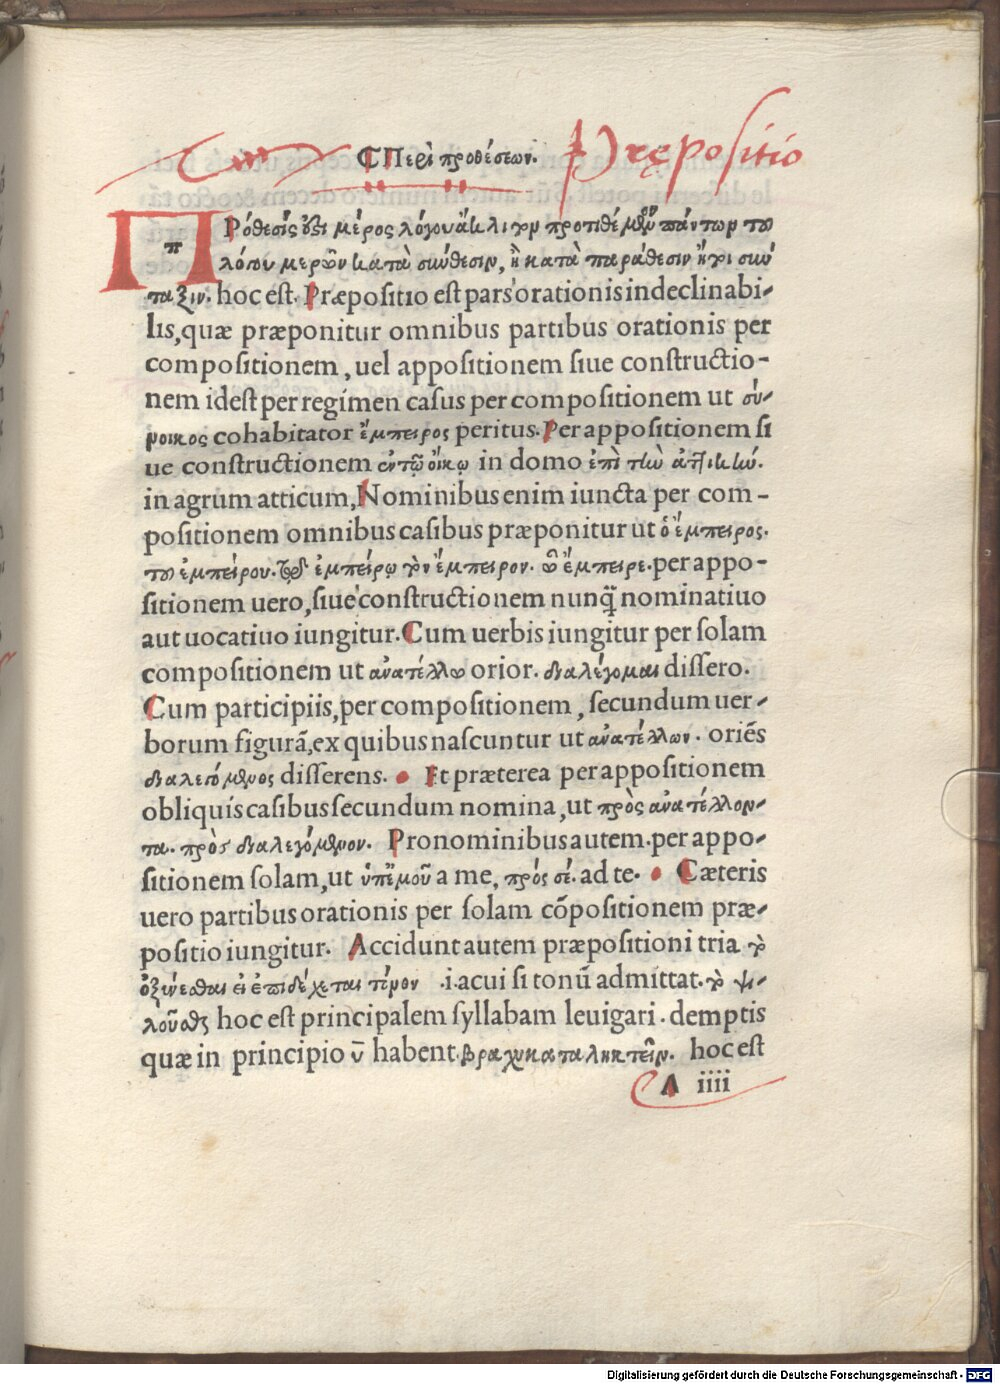 Περὶ προθέσεων. Prępositio
Πρόθεσίς ὅξι μέρος λόγου ἄκλιτον προτιθέμενον πάντων τοῦ
λόγου μερῶν κατὰ σύνθεσιν, ἢ κατὰ παράθεσιν ἤγουν σύν
ταξιν. hoc est. Præpositio est pars orationis indeclinabi-
lis, quæ præponitur omnibus partibus orationis per
compositionem, uel appositionem siue constructio-
nem idest per regimen casus per compositionem ut σύ-
νοικος cohabitator ἔμπειρος peritus. Per appositionem si
ue constructionem ἐν τῷ οἴκῳ in domo ἐπὶ τὴν ἀττικήν.
in agrum atticum, Nominibus enim iuncta per com-
positionem omnibus casibus præponitur ut ὁ ἔμπειρος.
τοῦ ἐμπείρου. τῷ ἐμπείρῳ τὸν ἔμπειρον. ὦ ἔμπειρε. per appo-
sitionem uero, siue constructionem nunq̃ nominatiuo
aut uocatiuo iungitur. Cum uerbis iungitur per solam
compositionem ut ἀνατέλλω orior. διαλέγομαι dissero.
Cum participiis, per compositionem, secundum uer-
borum figurã, ex quibus nascuntur ut ἀνατέλλων. oriẽs
διαλεγόμενος disserens. Et præterea per appositionem
obliquis casibus secundum nomina, ut πρὸς ἀνατέλλον-
τα. πρὸς διαλεγόμενον. Pronominibus autem per appo-
sitionem solam, ut ὑπ' ἐμοῦ a me, πρός σέ. ad te. Cæteris
uero partibus orationis per solam cõpositionem præ-
positio iungitur. Accidunt autem præpositioni tria τὸ
ὀξύνεσθαι εἰ ἐπιδέχεται τόνον .i. acui si tonũ admittat. τὸ ψι-
λοῦσθαι hoc est principalem syllabam leuigari. demptis
quæ in principio ῡ habent. βραχυκαταληκτεῖν. hoc est
A iiii
Digitalisierung gefördert durch die Deutsche Forschungsgemeinschaft - DFG